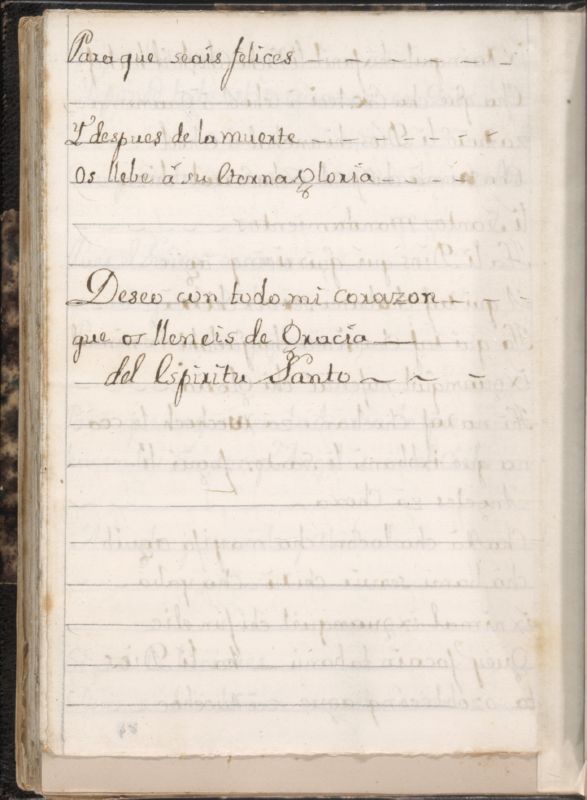 Para que seais felices — — — — — —
Y despues de la muerte — — — — — —
Os llebe á su Eterna Gloria — — —
Deseo con todo mi corazon — — —
que os lleneis de Gracia —
del Espiritu Santo — — — —